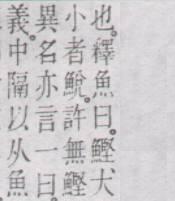 也。釋魚曰。鰹大
小者鮵。許無鰹
異名亦言一曰。
義。中隔以从魚